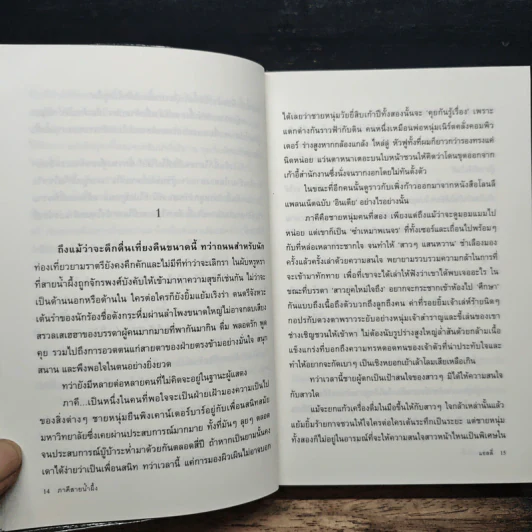 1
ถึงแม้ว่าจะดึกดื่นเที่ยงคืนขนาดนี้ ทว่าถนนสำหรับนัก
ท่องเที่ยวยามราตรียังคงคึกคักและไม่มีทีท่าว่าจะเลิกรา ในผับหรูหรา
ที่สายน้ำผึ้งถูกจักรพงศ์บังคับให้เข้ามาหาความสุขก็เช่นกัน ไม่ว่าจะ
เป็นด้านนอกหรือด้านใน ใครต่อใครก็ยังยิ้มแย้มเริงร่า ดนตรีจังหวะ
เต้นรำของนักร้องชื่อดังกระหึ่มผ่านลำโพงขนาดใหญ่ไม่อาจกลบเสียง
สรวลเสเฮฮาของบรรดาผู้คนมากมายที่พากันมากิน ดื่ม พลอดรัก พูด
คุย รวมไปถึงการอวดตนแก่สายตาของฝ่ายตรงข้ามอย่างมั่นใจ สนุก
สนาน และพึงพอใจในตนอย่างยิ่งยวด
ทว่ายังมีหลายต่อหลายคนที่ไม่คิดจะอยู่ในฐานะผู้แสดง
ภาคี...เป็นหนึ่งในคนที่พอใจจะเป็นฝ่ายเฝ้ามองความเป็นไป
ของสิ่งต่างๆ ชายหนุ่มยืนพิงเคาน์เตอร์บาร์อยู่กับเพื่อนสนิทสมัย
มหาวิทยาลัยซึ่งเคยผ่านประสบการณ์มามาก ทั้งที่มันๆ ลุยๆ ตลอด
จนประสบการณ์บู๊บ้าระห่ำมาด้วยกันตลอดสี่ปี ถ้าหากเป็นยามนั้นคง
เดาได้ง่ายว่าเป็นเพื่อนสนิท ทว่าเวลานี้ แค่การมองผิวเผินไม่อาจบอก
14 ภาคีสายน้ำผึ้ง
ได้เลยว่าชายหนุ่มวัยยี่สิบเก้าปีทั้งสองนั้นจะ 'คุยกันรู้เรื่อง' เพราะ
แตกต่างกันราวฟ้ากับดิน คนหนึ่งเหมือนพ่อหนุ่มเนิร์ดคลั่งคอมพิว
เตอร์ ร่างสูงหากกล้องแกล้ง ไหล่ลู่ หัวฟูทั้งที่ผมก็ยาวกว่ารองทรงแค่
นิดหน่อย แว่นตาหนาเตอะบนใบหน้าชวนให้คิดว่าโดนขุดออกจาก
เก้าอี้สำนักงานซึ่งนั่งจนรากงอกโดยไม่ทันตั้งตัว
ในขณะที่อีกคนนั้นดูราวกับเพิ่งก้าวออกมาจากหนังสือโลนลี
แพลนเน็ตฉบับ 'อินเดีย' อย่างไรอย่างนั้น
ภาคีคือชายหนุ่มคนที่สอง เพียงแต่ถึงแม้ว่าจะดูมอมแมมไป
หน่อย แต่เขาก็เป็น 'ซำเหมาพเนจร' ที่ทั้งเซอร์และเถื่อนไปพร้อมๆ
กับที่หล่อเหลากระชากใจ จนทำให้ 'สาวๆ แสนหวาน' ชำเลืองมอง
ครั้งแล้วครั้งเล่าด้วยความสนใจ พยายามรวบรวมความกล้าในการที่
จะเข้ามาทักทาย เพื่อที่เขาจะได้เล่าให้ฟังว่าเขาได้พบเจออะไร ใน
ขณะที่บรรดา 'สาวยุคใหม่ใจถึง' อยากจะกระชากเขาเข้าห้องไป 'ศึกษา'
กันแบบถึงเนื้อถึงตัวบวกถึงลูกถึงคน ค่าที่รอยยิ้มเจ้าเล่ห์ร้ายนิดๆ
กอปรกับดวงตาพราวระยับอย่างหนุ่มเจ้าสำราญและขี้เล่นของเขา
ช่างเชิญชวนให้เข้าหา ไม่ต้องนับรูปร่างสูงใหญ่ล่ำสันด้วยกล้ามเนื้อ
แข็งแกร่งที่บอกถึงความทรหดอดทนของเจ้าตัวที่น่าประทับใจและ
ทำให้อยากจะกัดเบาๆ เป็นเชิงหยอกเย้าเล้าโลมเสียเหลือเกิน
ทว่าเวลานี้ชายผู้ตกเป็นเป้าสนใจของสาวๆ มิได้ให้ความสนใจ
กับสาวใด
แม้จะยกแก้วเครื่องดื่มในมือขึ้นให้กับสาวๆ ใจกล้าเหล่านั้นแล้ว
แย้มยิ้มร้ายกาจชวนให้ใจใครต่อใครเต้นระทึกเป็นระยะ แต่ชายหนุ่ม
ทั้งสองก็ไม่อยู่ในอารมณ์ที่จะให้ความสนใจสาวหน้าไหนเป็นพิเศษใน
แอลลี่ 15